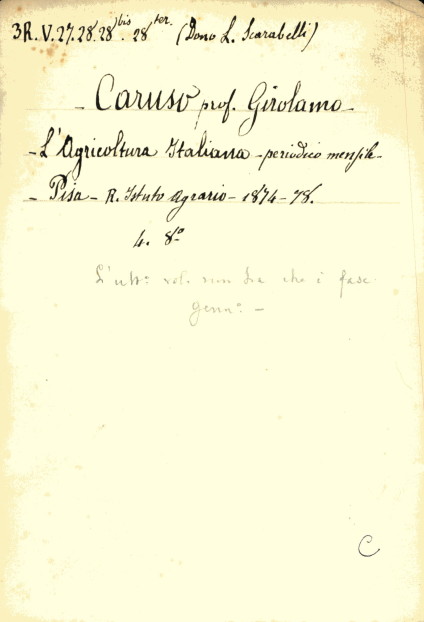 3R.V.27.28.28 bis. 28 ter. (Dono L. Scarabelli)
- Caruso prof. Girolamo -
- L'Agricoltura Italiana - periodico mensile -
- Pisa - R. Istuto Agrario - 1874-78.
4. 8º
L'ultº vol. non ha che i fasc.
Gennº. -
C